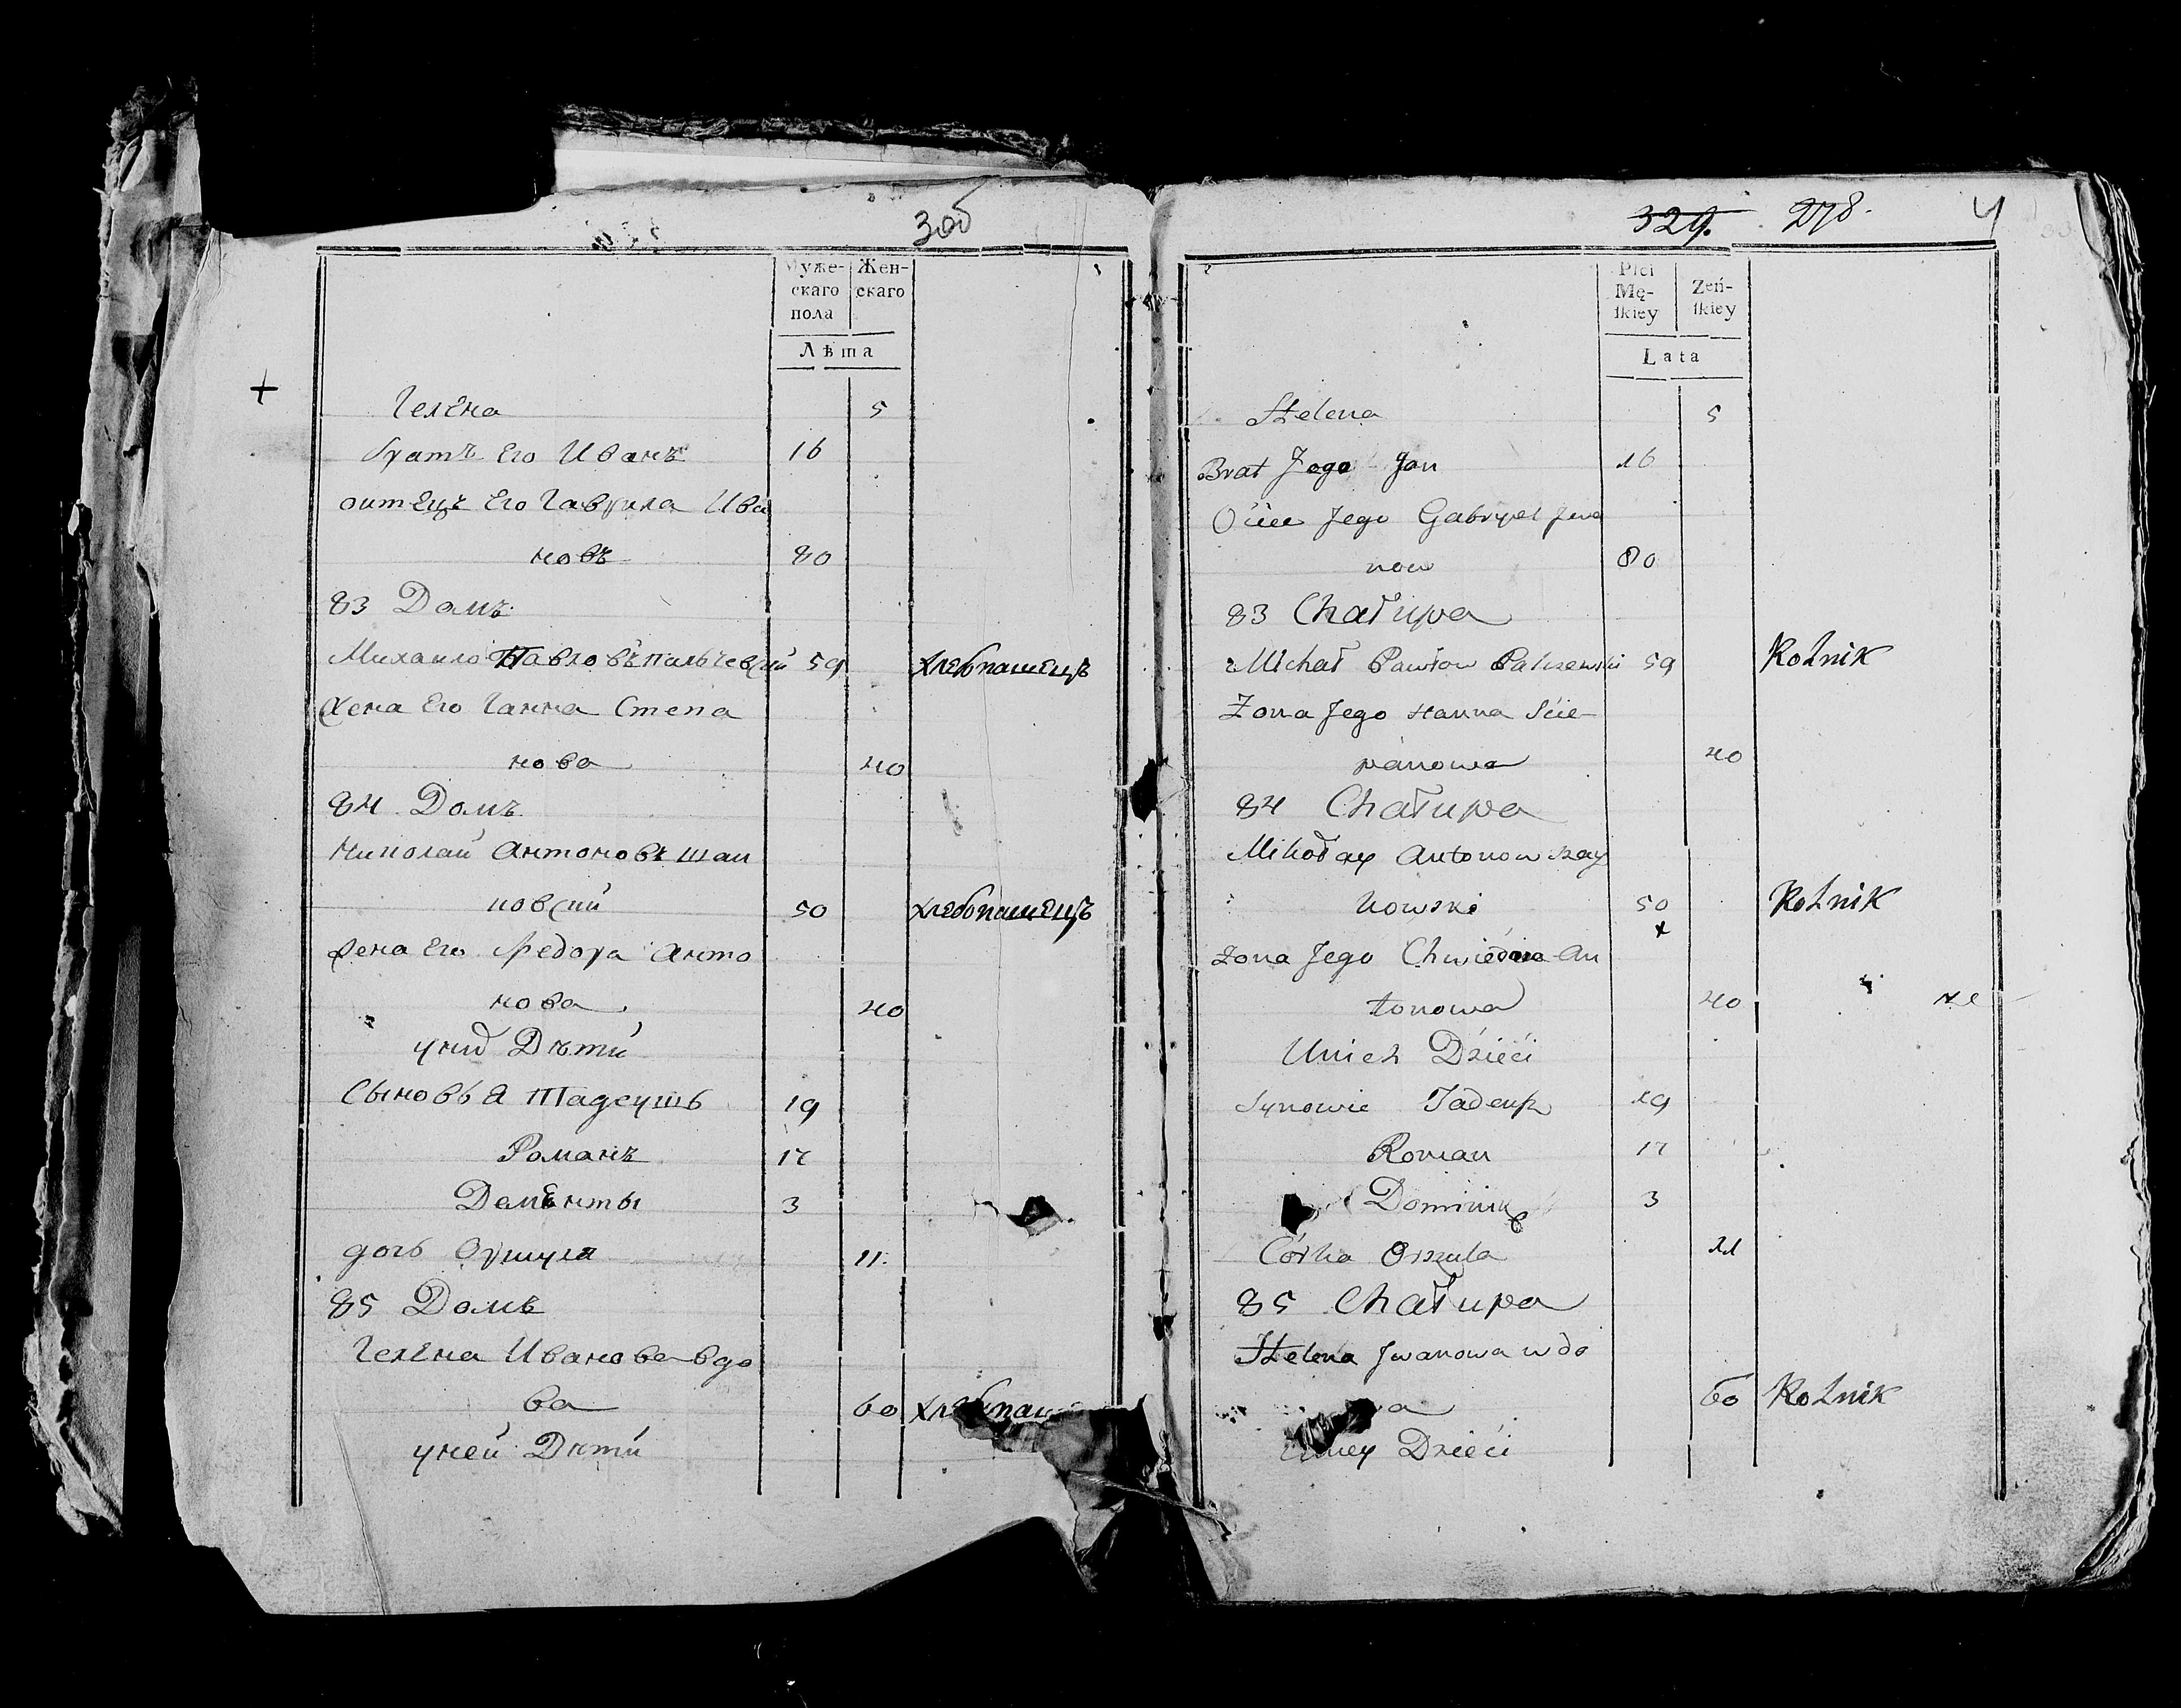 30об
Муже-
скаго
пола
Жен-
скаго
Лѣта
Гелена 5
братъ Его Иванъ 16
оитецъ Его Гаврила Ива
новъ 80
83 Домъ
Михаило Павловъ пальчевский 59 хлебпашецъ
Жена Его Ганна Степа
нова 40
84 Домъ
Николай Антоновъ Шаи
новский 50 хлебопашецъ
Жена Его Федора Анто
нова 40
Дѣти
Сыновья Тадеушъ 19
Романъ 17
Дементы 3
дочь Оршуля 11
85 Домъ
Гелена Иванова вдо
ва 60
уней Дѣти
329. 278. 4
Płci
Mę-
ſkiey
Żeń-
ſkiey
Lata
Helena 5
Brat Jego Jan 16
Jego Gabryel Jwa
now 80
83 Chałupa
Michał Pawłow Palczewski 59 Rolnik
Żona Jego HannaŚcie-
panowa 40
84 Chałupa
Mikołay Antonow Szay
nowski 50 Rolnik
x
Żona Jego An
tonowa 40
Unich Dzieći
Synowie Tadeusz 19
Roman 17
Dominik 3
Córka Orszula 11
85 Chałupa
Helena Jwanowa wdo
wa 60 Rolnik
Uniey Dzieći